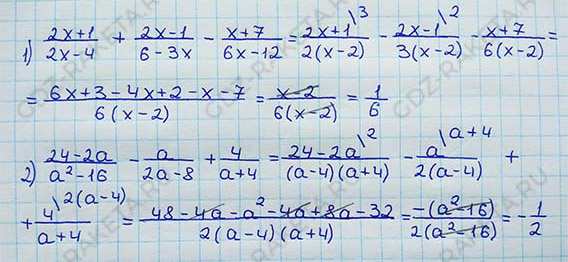 1) (2x+1)/(2x-4) + (2x-1)/(6-3x) - (x+7)/(6x-12) = (2x+1\3)/(2(x-2)) - (2x-1\2)/(3(x-2)) - (x+7)/(6(x-2)) =
= (6x+3-4x+2-x-7)/(6(x-2)) = (x-2)/(6(x-2)) = 1/6
2) (24-2a)/(a²-16) - a/(2a-8) + 4/(a+4) = (24-2a\2)/((a-4)(a+4)) - (a\a+4)/(2(a-4)) +
+ (4\2(a-4))/(a+4) = (48-4a-a²-4a+8a-32)/(2(a-4)(a+4)) = (-(a²-16))/(2(a²-16)) = -1/2
GDZ-RAKETA.RU